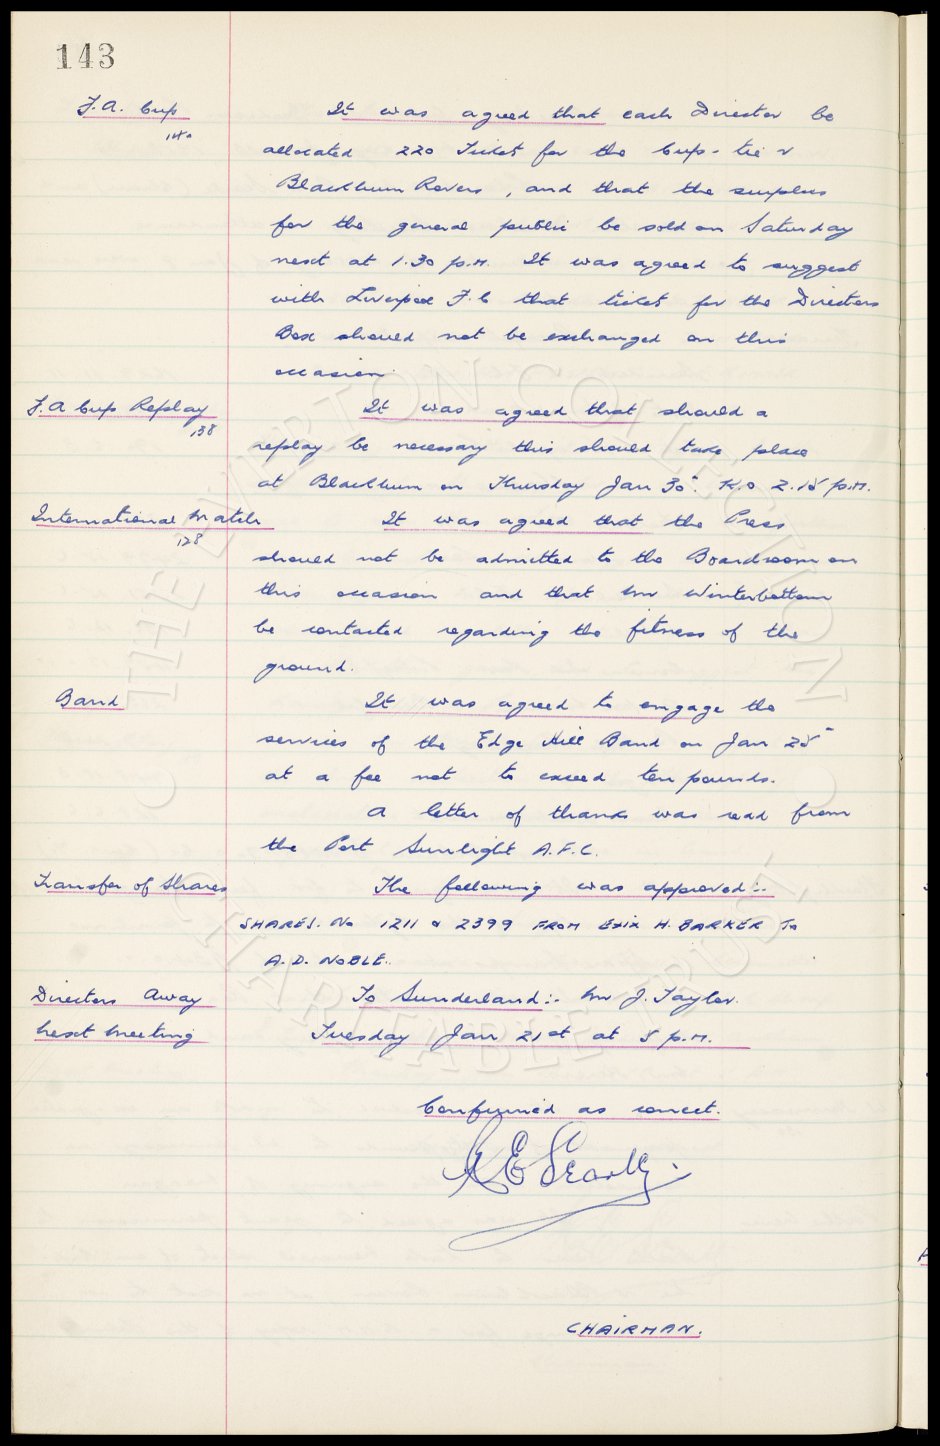 143
F.A. Cup
140
It was agreed that each Director be
allocated 220 Tickets for the Cup-tie v
Blackburn Rovers, and that the surplus
for the general public be sold on Saturday
next at 1.30 p.m. It was agreed to suggest
with Liverpool F.C that tickets for the Directors
Box should not be exchanged on this
occasion.
F.A Cup Replay
138
It was agreed that should a
replay be necessary this should take place
at Blackburn on Thursday Jan 30th. K.O 2.15 p.m.
International Match
128
It was agreed that the Press
should not be admitted to the Boardroom on
this occasion and that Mr Winterbottom
be contacted regarding the fitness of the
ground.
Band
It was agreed to engage the
services of the Edge Hill Band on Jan 25th
at a fee not to exceed ten pounds.
A letter of thanks was read from
the Port Sunlight A.F.C.
Transfer of Shares
The following was approved:-
SHARES. No 1211 & 2399 FROM EXIX H. BARKER To
A.D. NOBLE.
Directors Away
To Sunderland:- Mr J. Taylor.
Next Meeting
Tuesday Jan 21st at 5 p.m.
Confirmed as correct.
CHAIRMAN.
© THE EVERTON COLLECTION ©
CHARITABLE TRUST